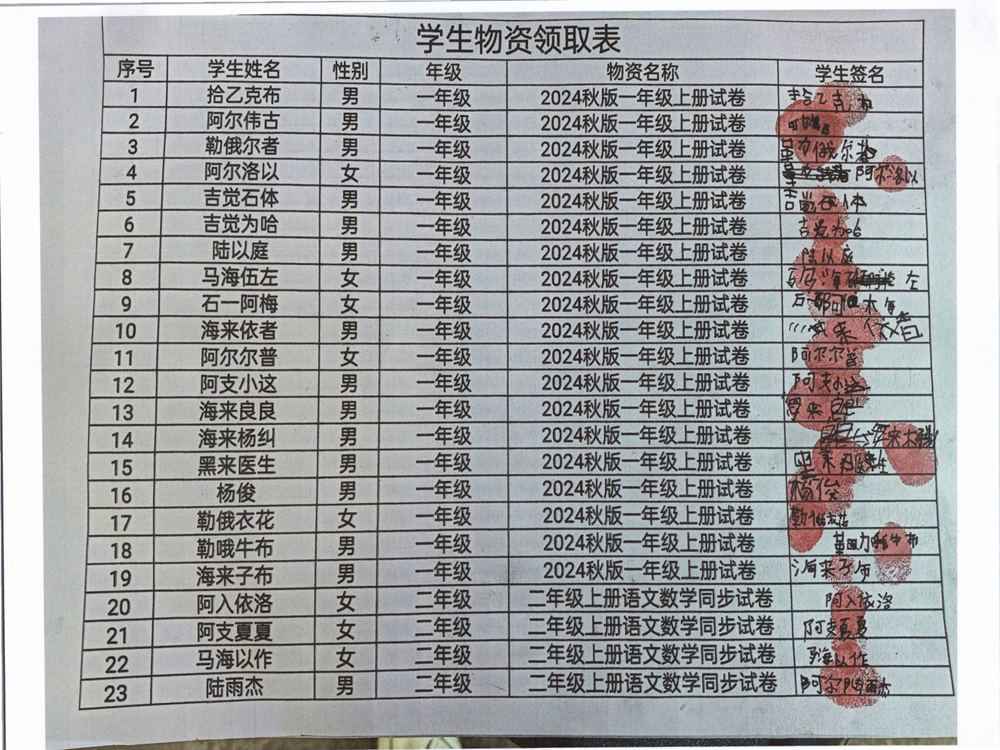 学生物资领取表
序号 学生姓名 性别 年级 物资名称 学生签名
1 拾乙克布 男 一年级 2024秋版一年级上册试卷 拾乙克布
2 阿尔伟古 男 一年级 2024秋版一年级上册试卷
3 勒俄尔者 男 一年级 2024秋版一年级上册试卷 勒俄尔者
4 阿尔洛以 女 一年级 2024秋版一年级上册试卷 阿尔洛以
5 吉觉石体 男 一年级 2024秋版一年级上册试卷 吉觉石体
6 吉觉为哈 男 一年级 2024秋版一年级上册试卷 吉觉为哈
7 陆以庭 男 一年级 2024秋版一年级上册试卷 陆以庭
8 马海伍左 女 一年级 2024秋版一年级上册试卷 马海 左
9 石一阿梅 女 一年级 2024秋版一年级上册试卷
10 海来依者 男 一年级 2024秋版一年级上册试卷 海来依者
11 阿尔尔普 女 一年级 2024秋版一年级上册试卷 阿尔尔普
12 阿支小这 男 一年级 2024秋版一年级上册试卷 阿支小这
13 海来良良 男 一年级 2024秋版一年级上册试卷
14 海来杨纠 男 一年级 2024秋版一年级上册试卷
15 黑来医生 男 一年级 2024秋版一年级上册试卷 黑来医生
16 杨俊 男 一年级 2024秋版一年级上册试卷 杨俊
17 勒俄衣花 女 一年级 2024秋版一年级上册试卷 勒俄衣花
18 勒哦牛布 男 一年级 2024秋版一年级上册试卷 勒哦牛布
19 海来子布 男 一年级 2024秋版一年级上册试卷 海来子布
20 阿入依洛 女 二年级 二年级上册语文数学同步试卷 阿入依洛
21 阿支夏夏 女 二年级 二年级上册语文数学同步试卷 阿支夏夏
22 马海以作 女 二年级 二年级上册语文数学同步试卷 马海以作
23 陆雨杰 男 二年级 二年级上册语文数学同步试卷